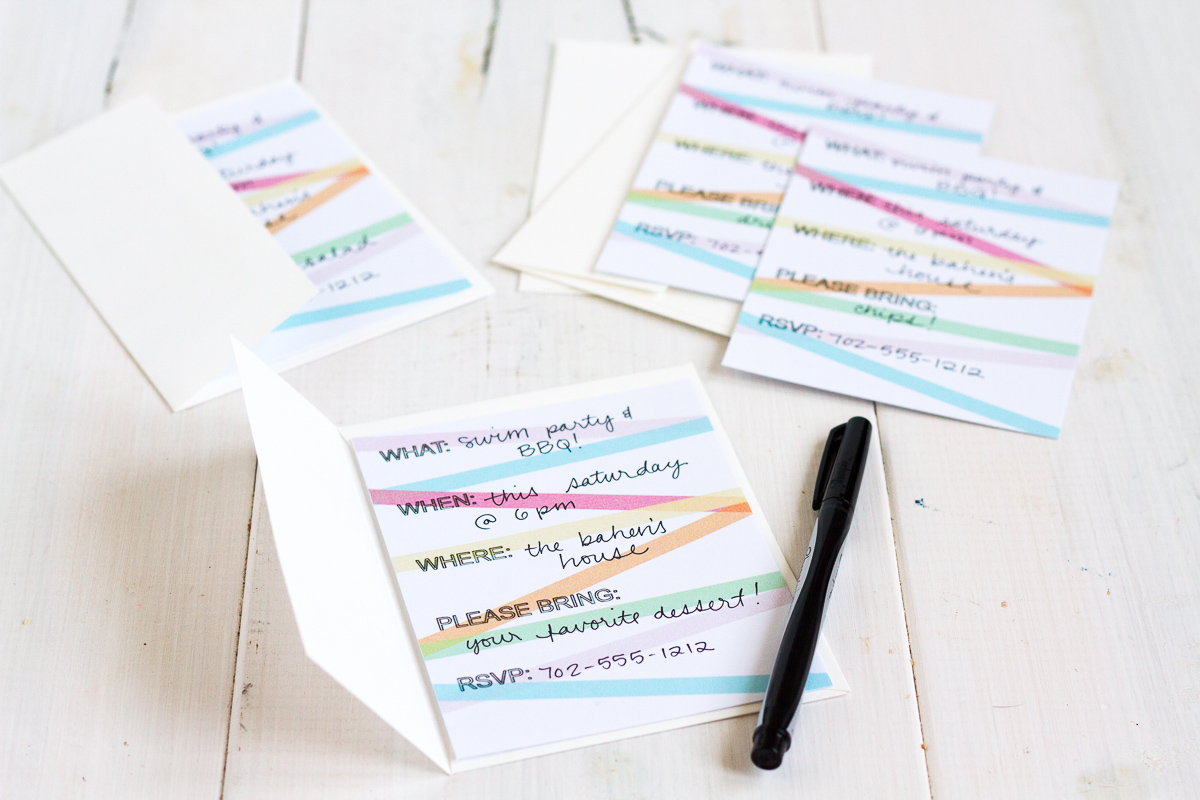 WHAT: swim party &
BBQ!
WHEN: this saturday
@ 6pm
WHERE: the bahen's
house
PLEASE BRING:
your favorite dessert!
RSVP: 702-555-1212
WHAT: swim party &
BBQ!
WHEN: this saturday
@ 6pm
WHERE: the bahen's
house
PLEASE BRING:
chips!
RSVP: 702-555-1212
WHAT: swim party &
BBQ!
WHEN:
WHERE: the
PLEASE BRING
RSVP: 702-
party &
saturday
bahen's
salad
-1212